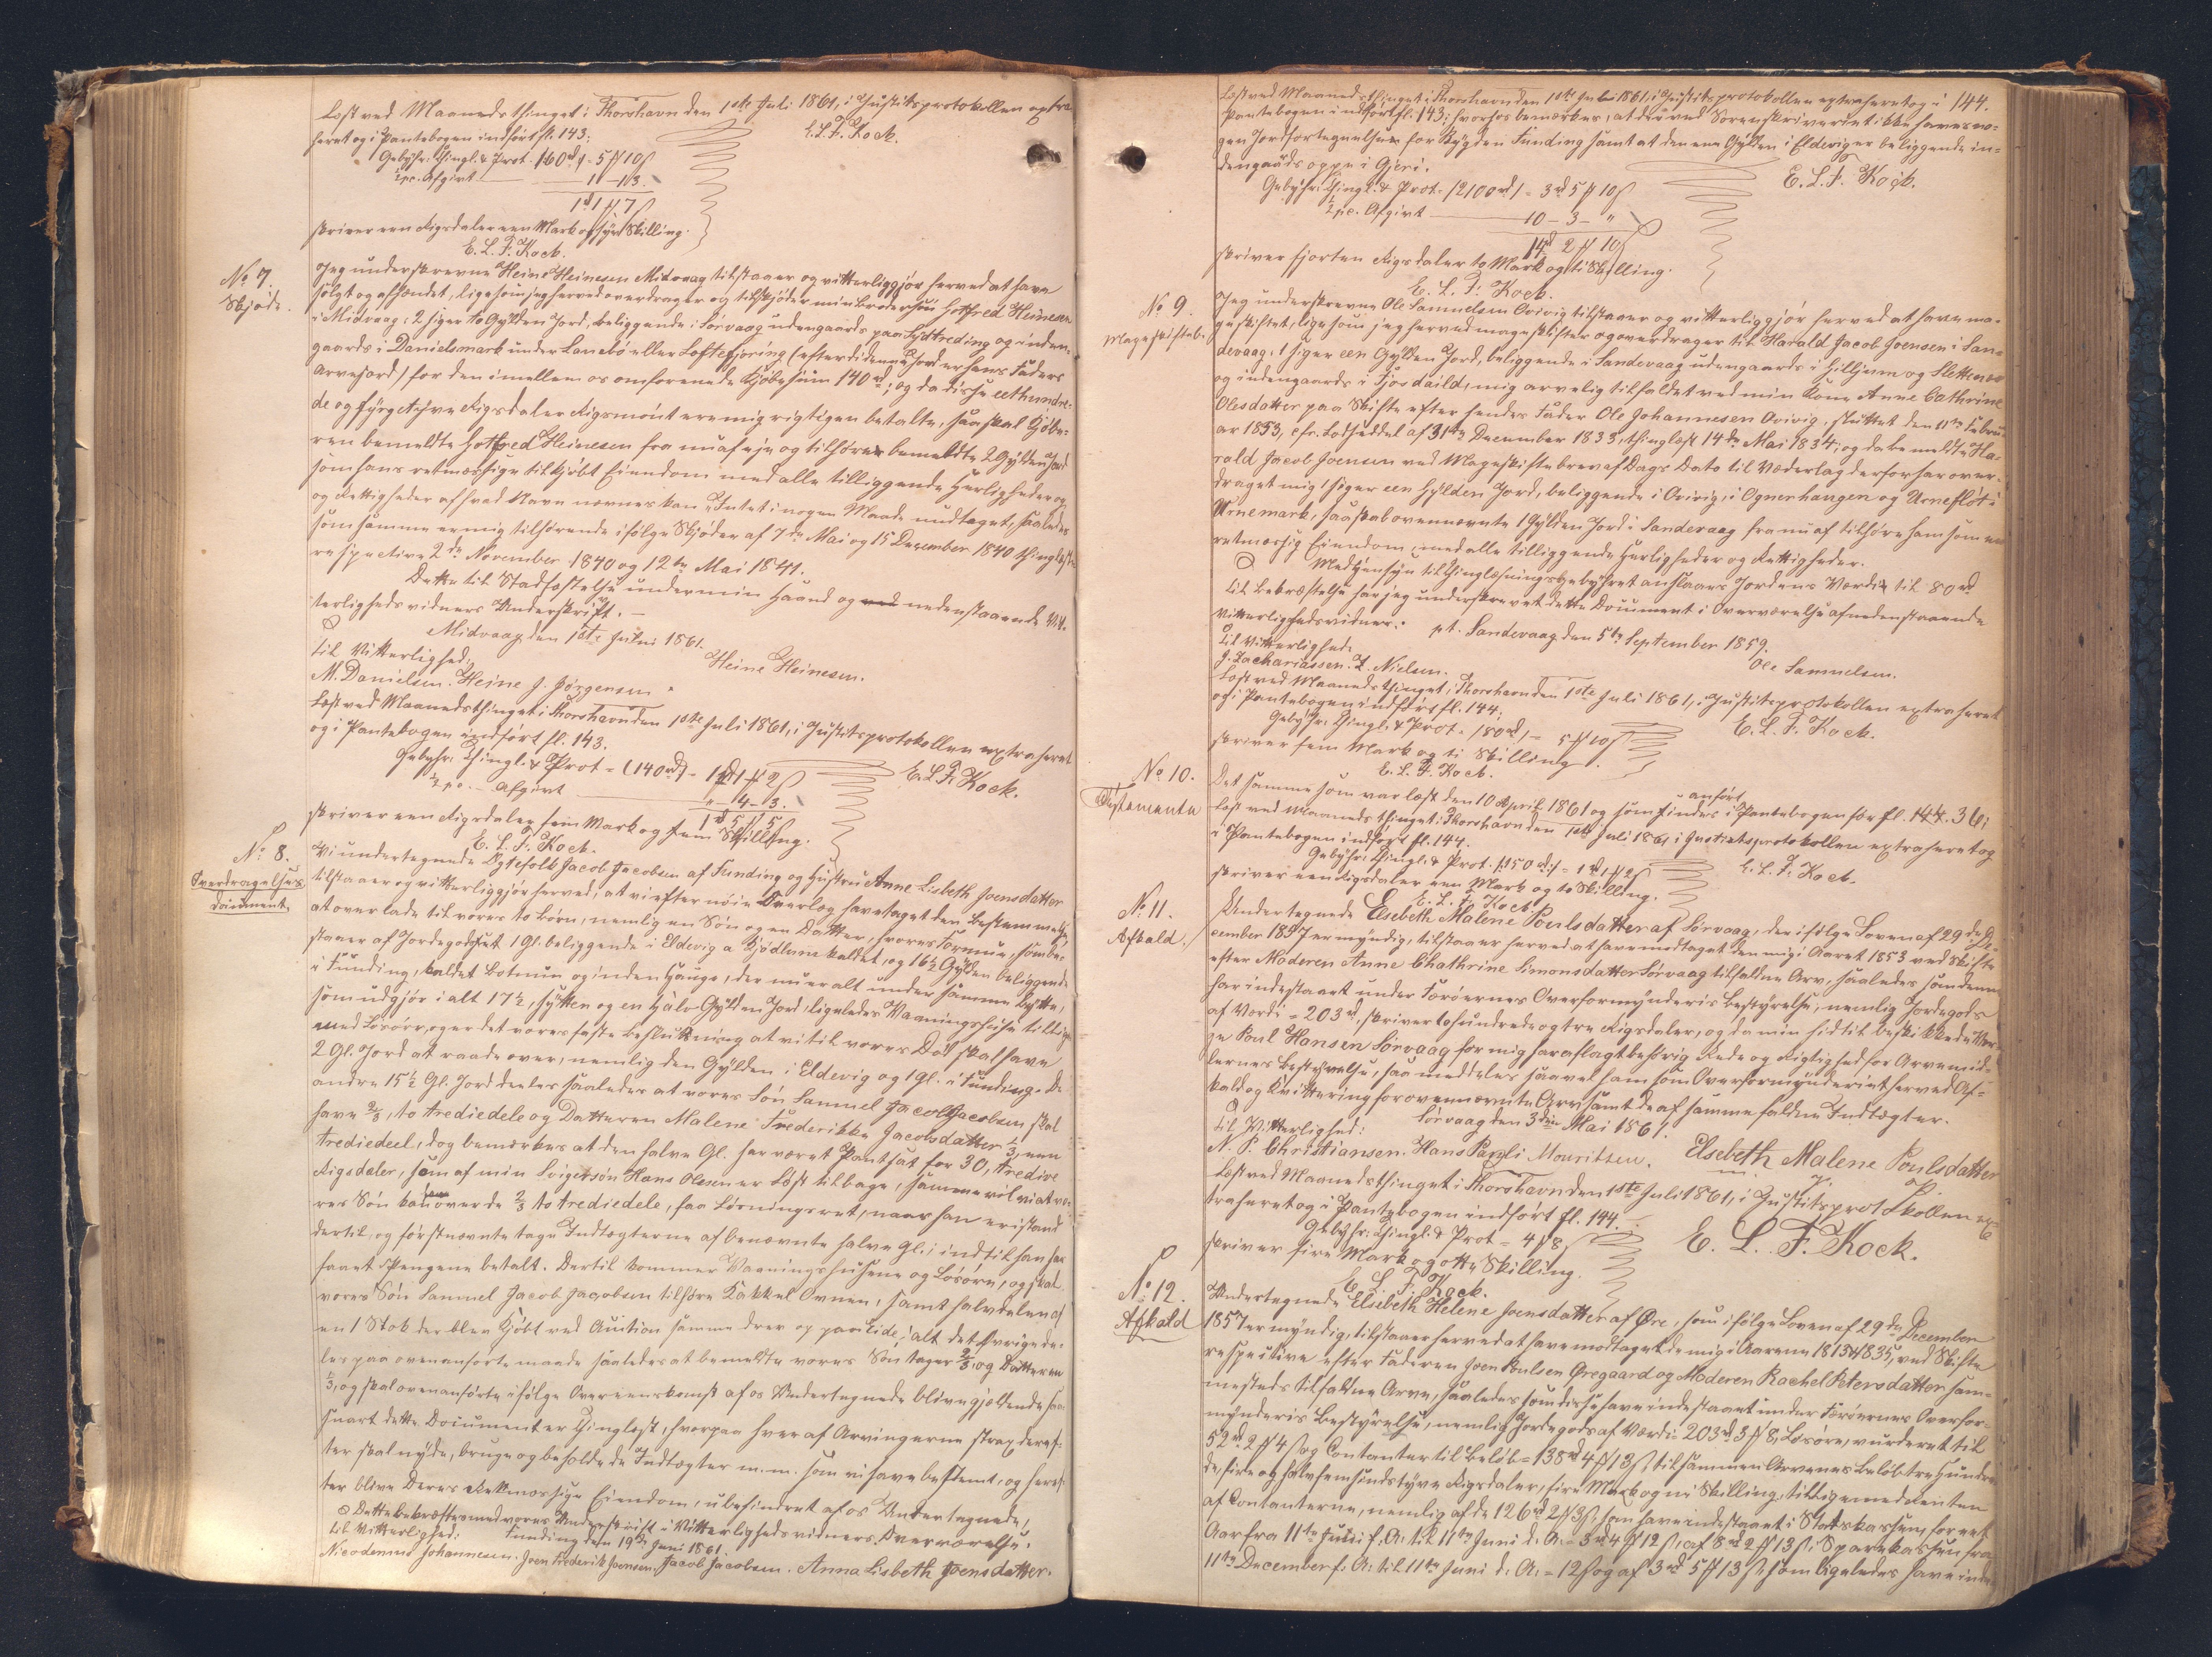 Læst ved Maanedsthinget i Thorshavn den 1ste Juli 1861, i Justitsprotokollen extra
heret og i Pantebogen indført fl. 143.
E. L. F. Kock.
Gebyhr: Thingl. & Prot. 160rd - 5 ℔ 10 ß
½ pc. Afgivt — 1 — 1 - 13.
1rd 1 ℔ 7 ß
skriver een Rigsdaler een Mark og syv Skilling.
E. L. F. Kock.
No 7.
Skjøde.
Jeg underskrevne Heine Heinesen Midvaag tilstaaer og vitterliggjør herved at have
solgt og afhændet, ligesom jeg herved overdrager og tilskjøder min Brodersøn Hotfred Heinesen
i Midvaag: 2 siger to Gylden Jord, beliggende i Sørvaag udengaards paa Lydtreding og inden-
gaards i Danielsmark under Lanebø eller Loftegjering (efterdi denne Jord er hans Faders
Arvejord) for den imellem os omforenede Kjøbesum 140rd; og da disse eethundre-
de og fyrgetyve Rigsdaler Rigsmønt ere mig rigtigen betalte, saa skal Kjøbe-
ren bemeldte Hotfred Heinesen fra nu af eje og tilhøre bemeldte 2 Gylden Jord
som hans retmæssige tilkjøbt Eiendom med alle tilliggende Herligheder og
og Rettigheder af hvad Navn nævnes kan, Intet i nogen Maade undtaget, saaledes
som samme er mig tilhørende ifølge Skjøder af 7de Mai og 15 December 1840 thinglæste
respective 2de November 1840 og 12te Mai 1841.
Dette til Stadfæstelse under min Haand og ved nedenstaaende Vit-
terligheds vidners Underskrift. —
Midvaag den 1ste Juni 1861.
Til Vitterlighed:
Heine Heinesen.
M. Danielsen. Heine J. Jørgensen
Læst ved Maanedsthinget i Thorshavn den 1ste Juli 1861, i Justitsprotokollen extraheret
og i Pantebogen indført fl. 143.
Gebyhr: Thingl. & Prot - (140rd) - 1rd 1 ℔ 2 ß
E. L. F. Kock.
½ pc. - Afgivt — " - 4 - 3.
1rd 5 ℔ 5 ß
skriver een Rigsdaler fem Mark og fem Skilling.
E. L. F. Kock.
No 8.
Overdragelses
document
Vi undertegnede Egtefolk Jacob Jacobsen af Funding og Hustru Anne Lisbeth Joensdatter
tilstaaer og vitterliggjør herved, at vi efter nøie Overlæg have taget den Bestemmelse
at overlade til vores to Børn, nemlig en Søn og en Datter, vores Formue, som be-
staaer af Jordegodset 1 Gl. beliggende i Eldevig a Gjødlunu kaldet, og 16½ Gylden beliggende
i Funding, kaldet Botnun og inden Hauge, der nu er alt under samme Bytte,
som udgjør i alt 17½, sytten og en halv Gylden Jord, ligeledes Vaaningshuse tillige
med Løsøre, og er det vores faste Beslutning at vi til vores Død skal have
2 Gl. Jord at raade over, nemlig den Gylden i Eldevig og 1 Gl. i Funding. De
andre 15½ Gl. Jord deeles saaledes at vores Søn Samuel Jacob Jacobsen skal
have ⅔, to trediedele og Datteren Malene Frederikke Jacobsdatter ⅓, een
trediedeel, dog bemærkes at den halve Gl. har været Pantsat for 30, tredive
Rigsdaler, som af min Svigersøn Hans Olesen er løst tilbage, samme vil vi at vo-
res Søn kan over de ⅔ to trediedele, faa Løsningsret, naar han er istand
dertil, og førstnævnte tage Indtægterne af benævnte halve Gl., indtil han har
faaet Pengene betalt. Dertil kommer Vaaningshusene og Løsøre, og skal
vores Søn Samuel Jacob Jacobsen tilhøre Kakkel Ovnen, samt halvdelen af
en 1 Stok der blev Kjøbt ved Auction samme drev op paa Eide, i alt det øvrige de-
les paa ovenanførte maade saaledes at bemeldte vores Søn tager ⅔, og Datteren
⅓, og skal ovenanførte ifølge Overeenskomst af os Undertegnede blive gjeldende saa
snart dette Document er Thinglæst, hvorpaa hver af Arvingerne strax deref-
ter skal nyde, bruge og beholde de Indtægter m. m. som vi have bestemt, og heref-
ter blive Deres Retmæssige Eiendom, ubehindret af os Undertegnede.
Dette bekræftes med vores Underskrift i Vitterligheds vidners Overværelse.
Til Vitterlighed: Funding den 19de Juni 1861.
Nicodemus Johannesen. Joen Frederik Joensen. Jacob Jacobsen. Anna Lisbeth Joensdatter.
144.
Læst ved Maanedsthinget i Thorshavn den 1ste Juli 1861, i Justitsprotokollen extraheret og i
Pantebogen indført fl. 143; hvorhos bemærkes, at der ved Sorenskriveriet ikke haves no-
gen Jordfortegnelse for Bygden Funding samt at den ene Gylden i Eldevig er beliggende in-
dengaards oppe i Gjeri.
E. L. F. Kock.
Gebyhr: Thingl. & Prot. (2100rd) = 3rd 5 ℔ 10 ß
½ pc. Afgivt — 10 - 3 - "
14rd 2 ℔ 10 ß
skriver fjorten Rigsdaler to Mark og ti Skilling.
E. L. F. Kock.
No 9.
Mageskiftebr.
Jeg underskrevne Ole Samuelsen Ovivig tilstaaer og vitterliggjør herved at have ma-
geskiftet, ligesom jeg herved mageskifter og overdrager til Harald Jacob Joensen i San-
devaag: 1 siger een Gylden Jord, beliggende i Sandevaag udengaards i Hilljum og Slettenes
og indengaards i Fjosdaild, mig arvelig tilfaldet ved min Kone Anne Cathrine
Olesdatter paa Skifte efter hendes Fader Ole Johannesen Ovivig, sluttet den 11te Febru-
ar 1853, cfr. Lodseddel af 31te December 1833, thinglæst 14de Mai 1834; og da bemeldte Ha-
rald Jacob Joensen ved Mageskiftebrev af Dags Dato til Vederlag derfor har over-
draget mig 1 siger een Gylden Jord, beliggende i Ovivig, i Ognerhaugen og Urnefløt i
Urnemark, saa skal ovennævnte 1 Gylden Jord i Sandevaag fra nu af tilhøre ham som en
retmæssig Eiendom, med alle tilliggende Herligheder og Rettigheder.
Med Hensyn til Thinglæsningsgebyhret anslaaes Jordens Værdi til 80rd
Til Bekræftelse har jeg underskrevet dette Document i Overværelse af nedenstaaende
Vitterlighedsvidner.
pt. Sandevaag den 5te September 1859.
Til Vitterlighed:
Ole Samuelsen.
J. Zachariassen. Z. Nielsen.
Læst ved Maanedsthinget i Thorshavn den 1ste Juli 1861, i Justitsprotokollen extraheret
og i Pantebogen indført fl. 144.
E. L. F. Kock.
Gebyhr: Thingl. & Prot. (80rd) = 5 ℔ 10 ß
skriver fem Mark og ti Skilling.
E. L. F. Kock.
No 10.
Testamente
Det samme som var læst den 10 April 1861 og som findes anført i Pantebogen for fl. 144. 36;
læst ved Maanedsthinget i Thorshavn den 1ste Juli 1861 i Justitsprotokollen extraheret og
i Pantebogen indført fl. 144.
E. L. F. Kock.
Gebyhr: Thingl. & Prot. (:150rd:) = 1rd 1 ℔ 2 ß
skriver een Rigsdaler een Mark og to Skilling.
E. L. F. Kock
No 11.
Afkald.
Undertegnede Elsebeth Malene Poulsdatter af Sørvaag, der ifølge Loven af 29de De-
cember 1857 er myndig, tilstaaer herved at have modtaget den mig i Aaret 1853 ved Skifte
efter Moderen Anne Chathrine Simonsdatter Sørvaag tilfaldne Arv, saaledes som denne
har indestaaet under Færøernes Overformynderis Bestyrelse, nemlig Jordegods
af Værdi = 203rd, skriver tohundrede og tre Rigsdaler, og da min hidtil beskikkede Vær-
ge Poul Hansen Sørvaag for mig har aflagt behørig Rede og Rigtighed for Arvemid-
lernes Bestyrelse, saa meddeles saavel ham som Overformynderiet herved Af-
kald og Kvittering for ovennævnte Arv samt de af samme faldne Indtægter.
Sørvaag den 3die Mai 1861.
Til Vitterlighed:
N. P. Christiansen. Hans Pauli Mouritzen. Elsebeth Malene Poulsdatter
Læst ved Maanedsthinget i Thorshavn den 1ste Juli 1861, i Justitsprotokollen ex-
traheret og i Pantebogen indført fl. 144.
Gebyhr: Thingl. & Prot = 4 ℔ 8 ß
E. L. F. Kock.
skriver fire Mark og otte Skilling.
E. L. F. Kock.
No 12.
Afkald
Undertegnede Elsebeth Helene Joensdatter af Øre, som ifølge Loven af 29de December
1857 er myndig, tilstaaer herved at have modtaget de mig i Aarene 1813 & 1835, ved Skifte
respective efter Faderen Joen Poulsen Øregaard og Moderen Rachel Petersdatter sam-
mesteds tilfaldne Arve, saaledes som disse have indestaaet under Færøernes Overfor-
mynderis Bestyrelse, nemlig Jordegods af Værdi: 203rd 3 ℔ 8 ß, Løsøre, vurderet til
52rd 2 ℔ 4 ß og Contanter til Beløb = 138rd 4 ℔ 13 ß, tilsammen Arvenes Beløb trehundre-
de, fire og halvfemsindstyve Rigsdaler, fire Mark og ni Skilling, tilligemed Renten
af Contanterne, nemlig af de 126rd 2 ℔ 3 ß, som have indestaaet i Statskassen, for eet
Aar fra 11te Juni f. A. til 11te Juni d. A. = 3rd 4 ℔ 12 ß, af 8rd 2 ℔ 13 ß, i Sparekassen fra
11te December f. A. til 11te Juni d. A. = 12 ß og af 3rd 5 ℔ 13 ß, som ligeledes have inde-